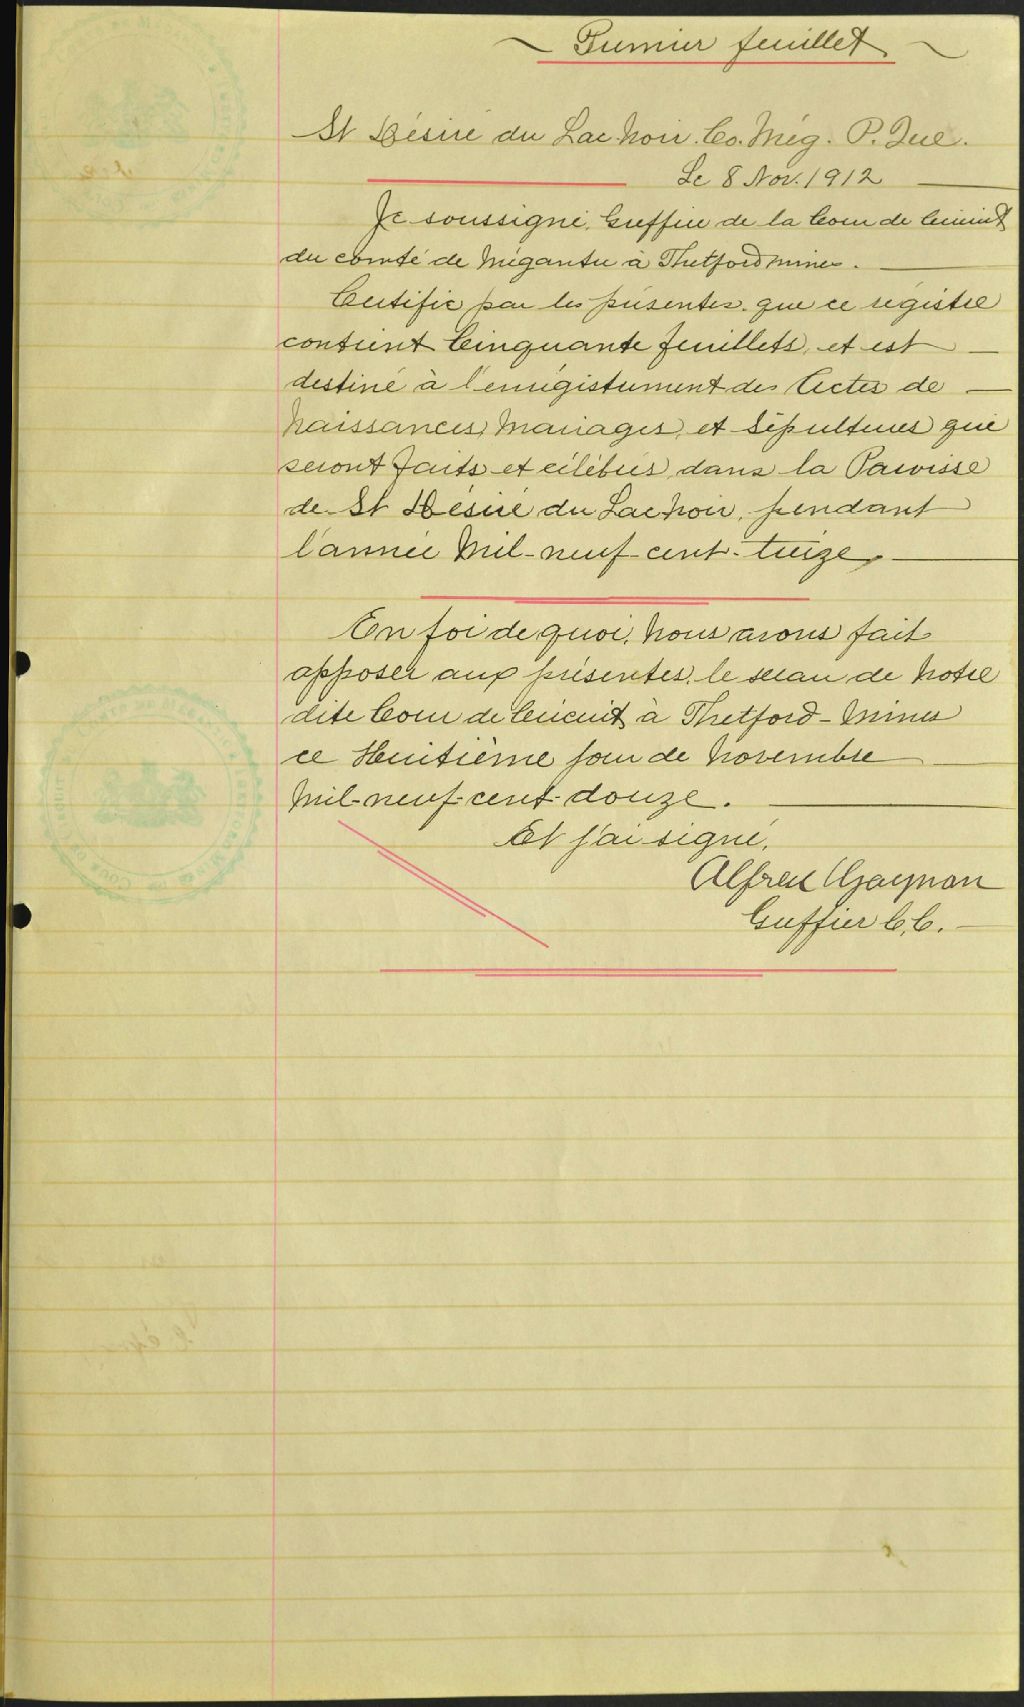 ~ Premier feuillet ~
St Désiré du Lac Noir. Co. Még. P. Que.
Le 8 Nov. 1912
Je soussigné, Greffier de la Cour de Circuit
du comté de Mégantic à Thetford mines.
Certifie par les présentes que ce régistre
contient Cinquante feuillets, et est
destiné à l'enrégistrement des Actes de
Naissances, Mariages, et Sépultures qui
seront faits et célébrés dans la Paroisse
de St Désiré du Lac Noir, pendant
l'année Mil-neuf-cent-treize,
En foi de quoi, Nous avons fait
apposer aux présentes, le sceau de Notre
dite Cour de Circuit, à Thetford-Mines
ce Huitième jour de Novembre
Mil-neuf-cent-douze.
Et j'ai signé,
Alfred Gagnon
Greffier C.C.